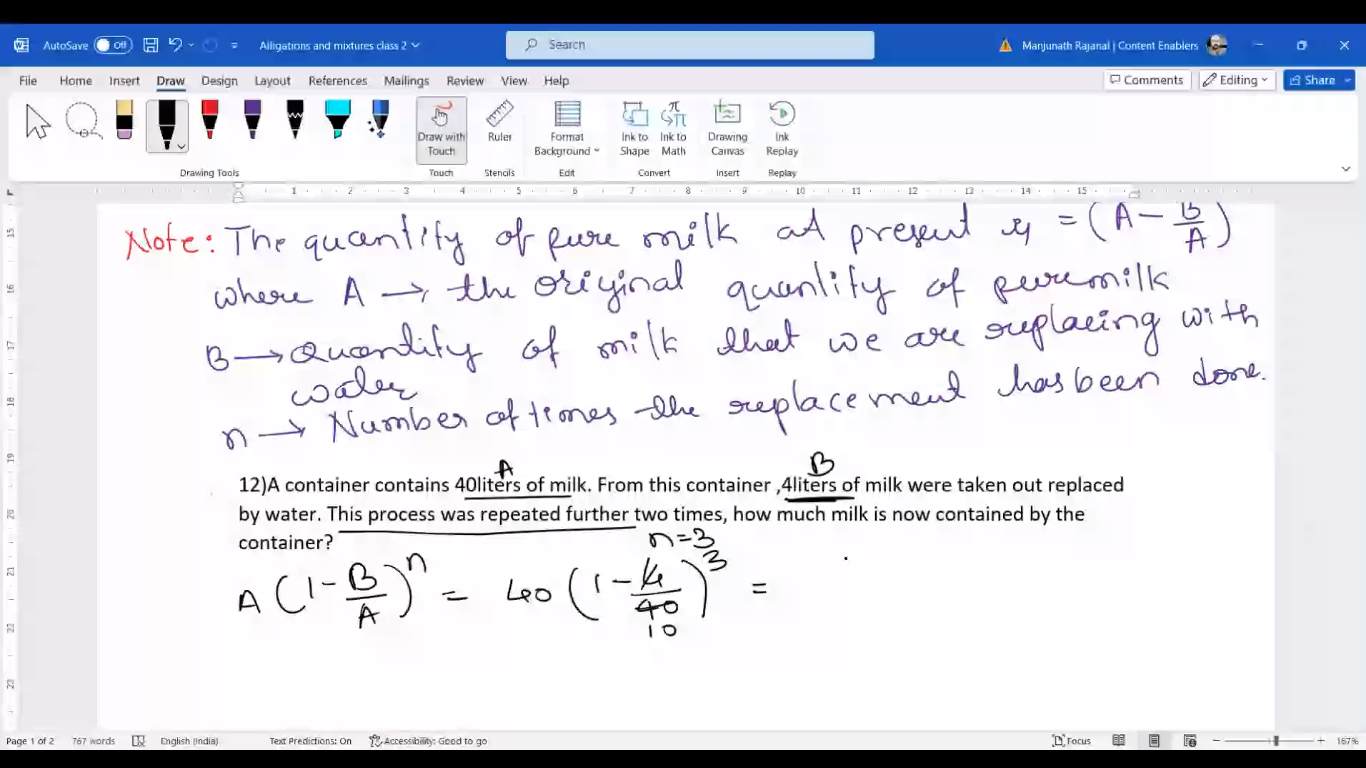 AutoSave Off Alligations and mixtures class 2 Search Manjunath Rajanal | Content Enablers
File Home Insert Draw Design Layout References Mailings Review View Help Comments Editing Share
Draw with Touch Ruler Format Background Ink to Shape Ink to Math Drawing Canvas Ink Replay
Drawing Tools Touch Stencils Edit Convert Insert Replay
1 2 3 4 5 6 7 8 9 10 11 12 13 14 15
Note: The quantity of pure milk at present is = (A - B/A)
where A → the original quantity of pure milk
B → Quantity of milk that we are replacing with
water
n → Number of times the replacement has been done.
A B
12)A container contains 40liters of milk. From this container ,4liters of milk were taken out replaced
by water. This process was repeated further two times, how much milk is now contained by the
container? n=3
A (1 - B/A)^n = 40 (1 - 4/40)^3 =
10
Page 1 of 2 767 words English (India) Text Predictions: On Accessibility: Good to go Focus 167%